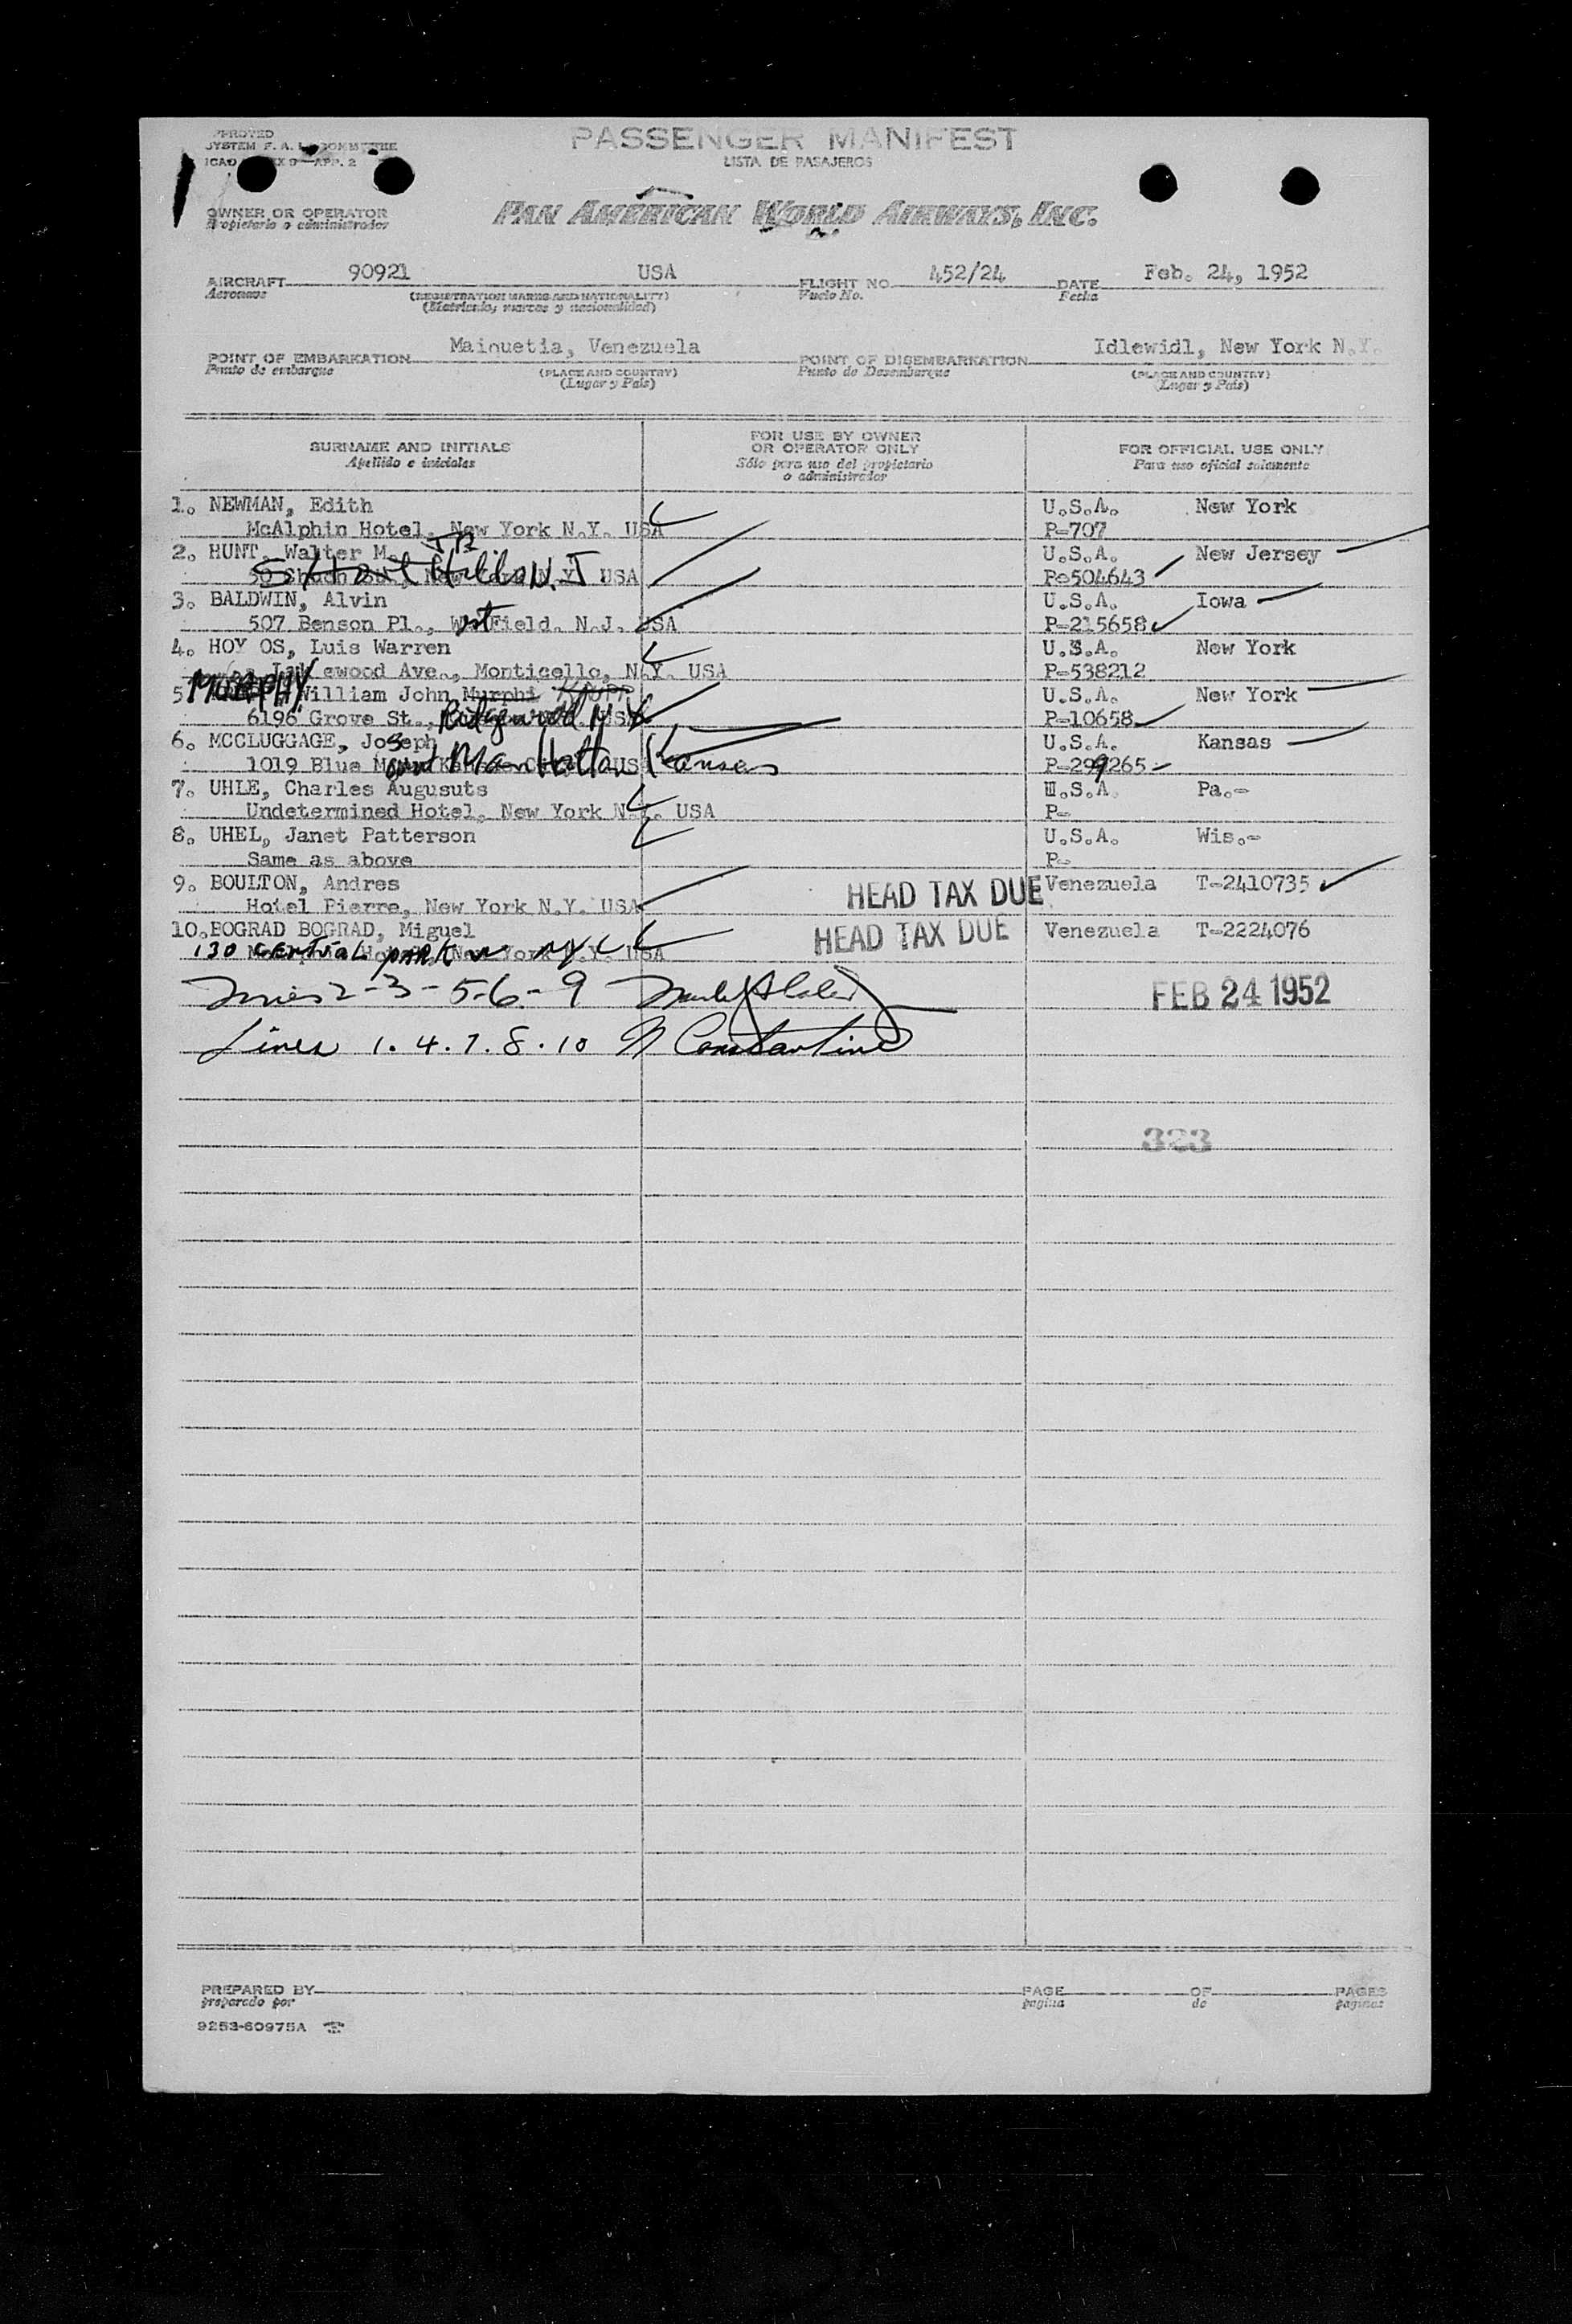 PASSENGER MANIFEST
LISTA DE PASAJEROS
APP. 2
OWNER OR OPERATOR
Propietario o administrador
PAN AMERICAN WORLD AIRWAYS, INC.
AIRCRAFT 90921 USA FLIGHT NO. 452/24 DATE Feb. 24, 1952
Aeronave (REGISTRATION MARKS AND NATIONALITY) Vuelo No. Fecha
(Matricula, marcas y nacionalidad)
POINT OF EMBARKATION Maiquetia, Venezuela POINT OF DISEMBARKATION Idlewidl, New York N.Y.
Punto de embarque (PLACE AND COUNTRY) Punto de Desembarque (PLACE AND COUNTRY)
(Lugar y País) (Lugar y País)
SURNAME AND INITIALS FOR USE BY OWNER OR OPERATOR ONLY FOR OFFICIAL USE ONLY
Apellido e iniciales Sólo para uso del propietario o administrador Para uso oficial solamente
1. NEWMAN, Edith U.S.A. New York
McAlphin Hotel, New York N.Y. USA P-707
2. HUNT, Walter M. JR U.S.A. New Jersey
Short Hills N.J USA P-504643
3. BALDWIN, Alvin U.S.A. Iowa
507 Benson Pl., Westfield, N.J. USA P-215658
4. HOY OS, Luis Warren U.S.A. New York
ewood Ave., Monticello, N.Y. USA P-538212
5. MURPHY William John Murphi U.S.A. New York
6196 Grove St., Ridgewood N Y P-10658
6. MCCLUGGAGE, Joseph U.S.A. Kansas
1019 Blue Mont Manhattan Kansas P-299265
7. UHLE, Charles Augusuts U.S.A. Pa.-
Undetermined Hotel, New York N.Y. USA P-
8. UHEL, Janet Patterson U.S.A. Wis.-
Same as above P-
9. BOULTON, Andres HEAD TAX DUE Venezuela T-2410735
Hotel Pierre, New York N.Y. USA
10. BOGRAD BOGRAD, Miguel HEAD TAX DUE Venezuela T-2224076
130 CENTRAL PARK W NYC
Lines 2-3-5-6-9 FEB 24 1952
Lines 1.4.7.8.10 Constantine
323
PREPARED BY PAGE OF PAGES
preparado por pagina de paginas
9253-60975A